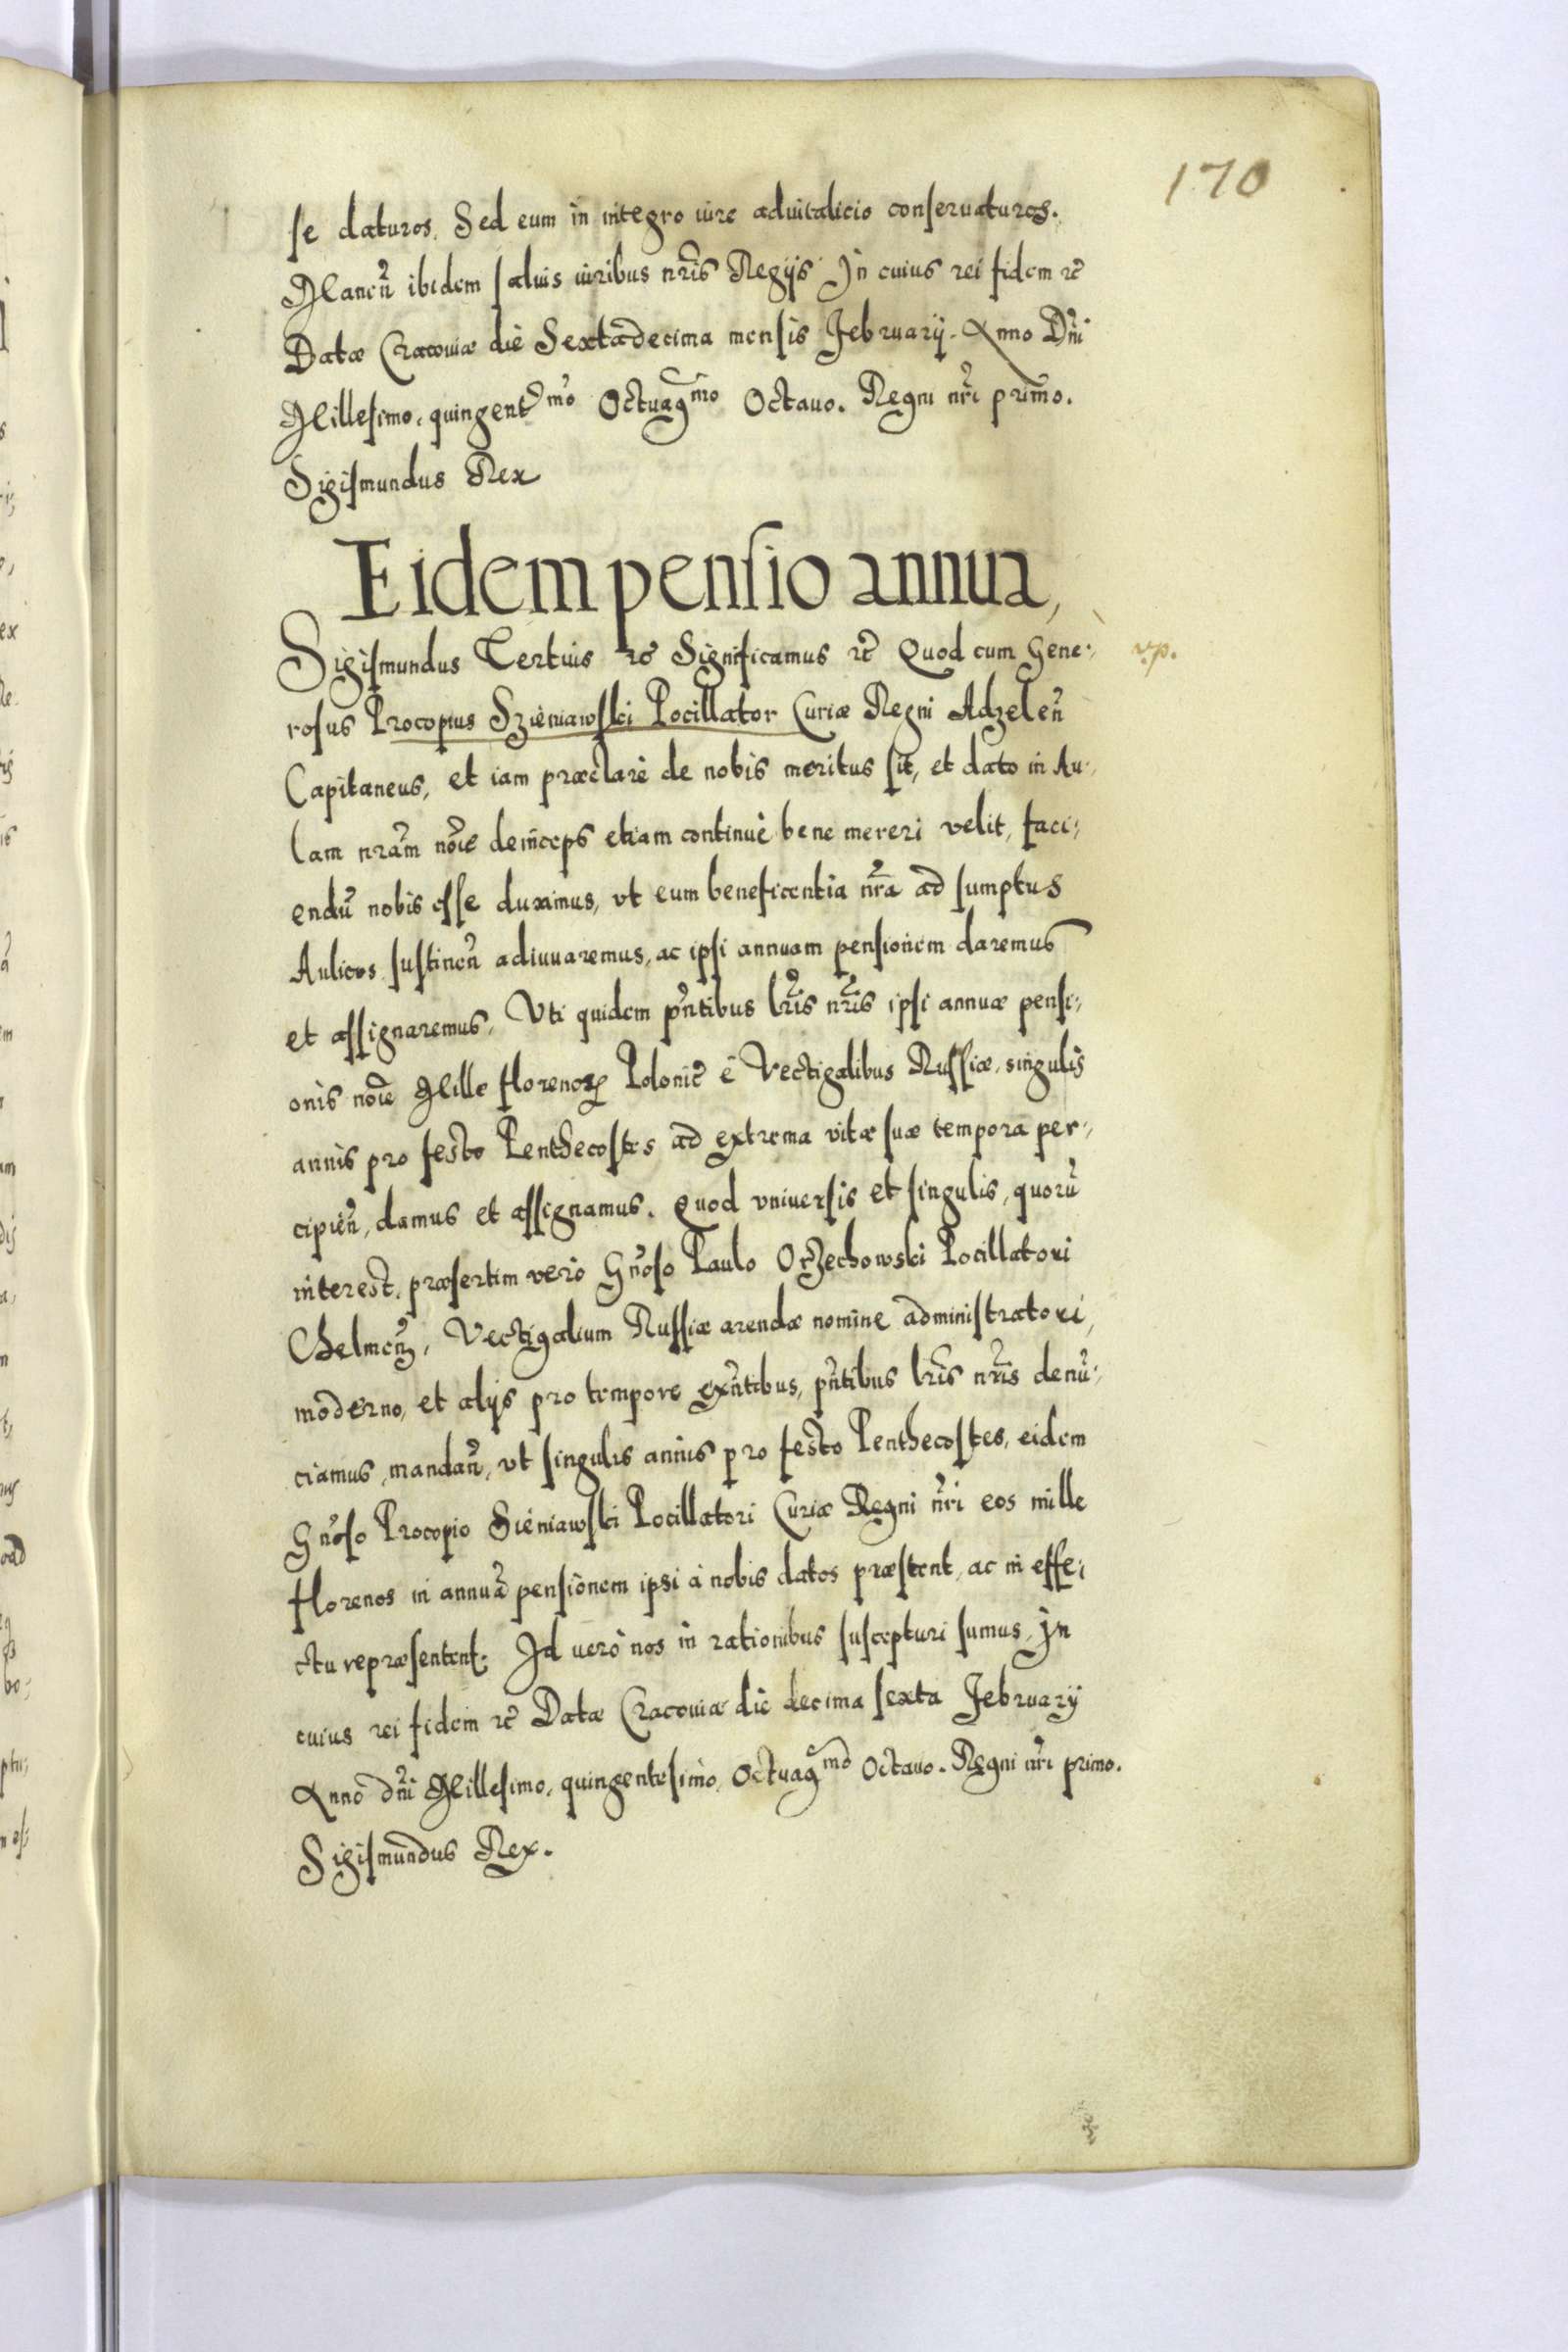 170
se daturos. Sed eum in integro iure aduitalicio conseruaturos.
Manen̄ ibidem saluis iuribus nr̄is Regijs In cuius rei fidem rc̄
Datæ Cracouiæ die Sextadecima mensis February. Anno Dn̄i
Millesimo, quingentmo Octuagmo Octauo. Regni nr̄i primo.
Sigismundus Rex
Eidem pensio annua,
Sigismundus Tertius rc̄ Significamus rc̄ Quod cum Gene:
v.p.
rosus Procopius Szieniawski Pocillator Curiæ Regni Adzelen̄
Capitaneus, et iam præclarè de nobis meritus sit, et dato in Au:
lam nram̄ noīe deinceps etiam continuè bene mereri velit, faci:
endū nobis esse duximus, vt eum beneficentia nr̄a ad sumptus
Aulicos sustinen̄ adiuuaremus, ac ipsi annuam pensionem daremus
et assignaremus, Vti quidem pn̄tibus lr̄is nr̄is ipsi annuæ pensi:
onis noīe Mille florenorꝝ Polonic̄ è Vectigalibus Russiæ, singulis
annis pro festo Penthecostes ad extrema vitæ suæ tempora per:
cipien̄, damus et assignamus. Quod vniuersis et singulis, quorū
interest, præsertim verò Gn̄oso Paulo Orzechowski Pocillatori
Chelmen̄, Vectigalium Russiæ arendæ nomine administratori,
moderno, et alijs pro tempore exn̄tibus, pn̄tibus lr̄is nr̄is denū:
ciamus, mandan̄, vt singulis annis pro festo Penthecostes, eidem
Gn̄oso Procopio Sieniawski Pocillatori Curiæ Regni nr̄i eos mille
florenos in annuā pensionem ipsi à nobis datos præstent, ac in effe:
ctu repræsentent. Id uerò nos in rationibus suscepturi sumus. In
cuius rei fidem rc̄ Datæ Cracouiæ die decima sexta February
Anno dn̄i Millesimo, quingentesimo, Octuagmo Octauo. Regni nr̄i primo.
Sigismundus Rex.